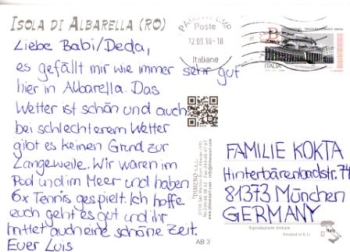 ISOLA DI ALBARELLA (RO)
Liebe Babi/Deda,
es gefällt mir wie immer sehr gut
hier in Albarella. Das
Wetter ist schön und auch
bei schlechterem Wetter
gibt es keinen Grund zur
Langeweile. Wir waren im
Pool und im Meer und haben
6x Tennis gespielt. Ich hoffe
euch geht es gut und ihr
hattet auch eine schöne Zeit.
Euer Luis
Poste
Italiane
FAMILIE KOKTA
Hinterbärenbadstr. 74
81373 München
GERMANY
AB 3